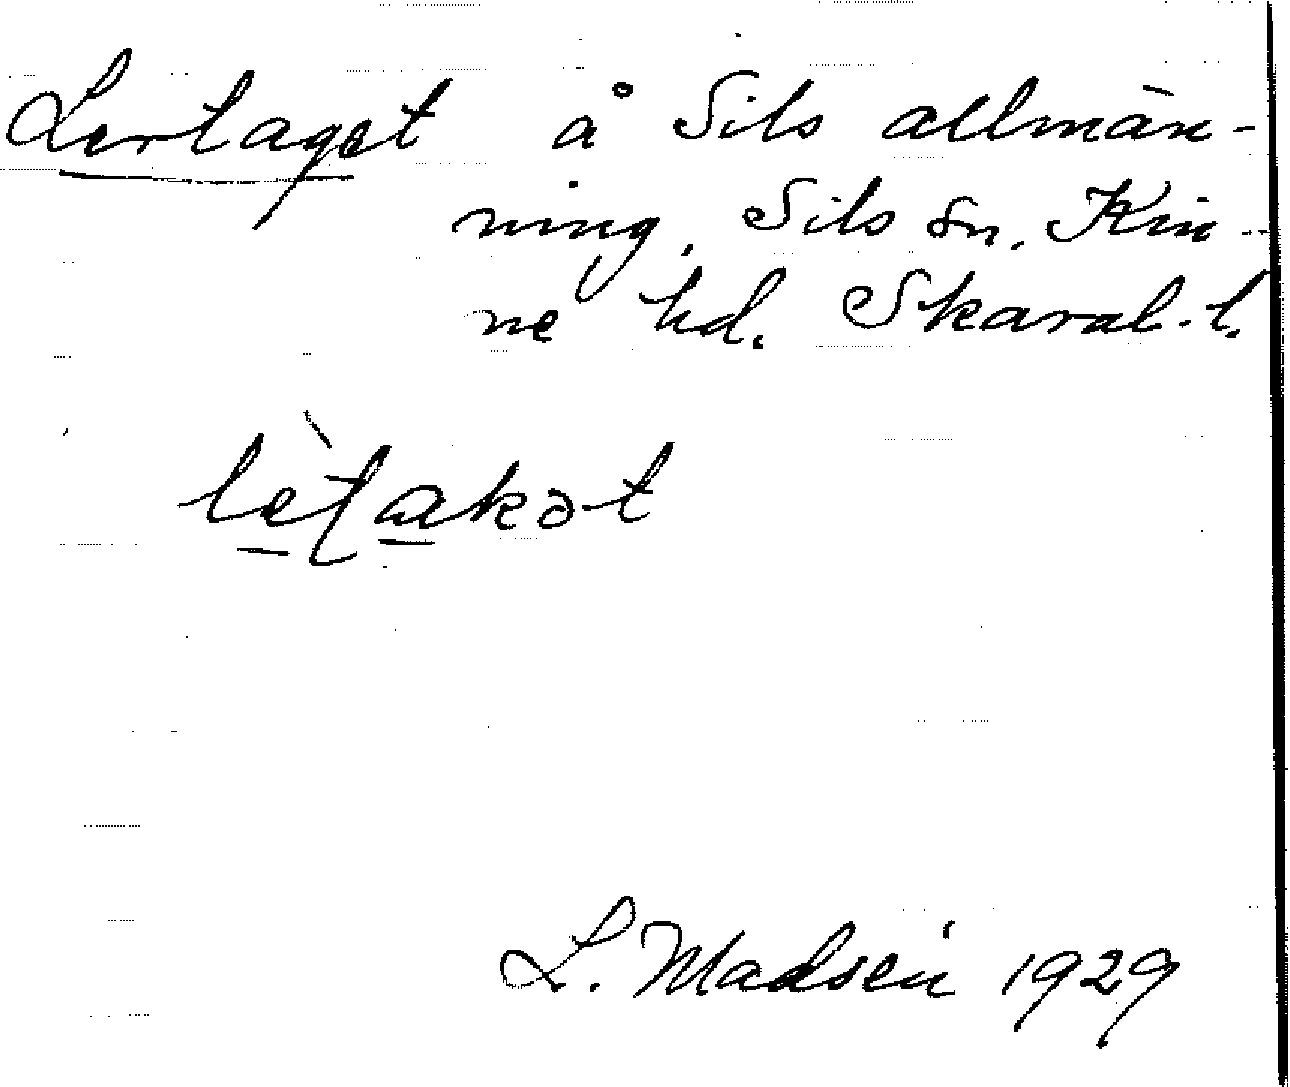 Lertaget å Sils allmän-
ning, Sils sn, Kin-
ne hd. Skarab. l.
L. Madsén 1929